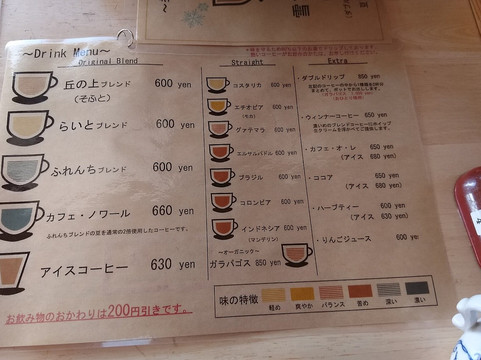 ～Drink Menu～
Original Blend
丘の上ブレンド 600 yen
(そふと)
らいとブレンド 600 yen
ふれんちブレンド 600 yen
カフェ・ノワール 660 yen
ふれんちブレンドの豆を通常の2倍使用したコーヒーです。
アイスコーヒー 630 yen
お飲み物のおかわりは200円引きです。
Straight
コスタリカ 600 yen
エチオピア 600 yen
(モカ)
グァテマラ 600 yen
エルサルバドル 600 yen
ブラジル 600 yen
コロンビア 600 yen
インドネシア 600 yen
(マンデリン)
～オーガニック～
ガラパゴス 850 yen
Extra
・ダブルドリップ 850 yen
・ウィンナーコーヒー 650 yen
・カフェ・オ・レ 650 yen
(アイス 680 yen)
・ココア 650 yen
(アイス 680 yen)
・ハーブティー 600 yen
(アイス 630 yen)
・りんごジュース 600 yen
味の特徴
軽め 爽やか バランス 苦め 深い 濃い